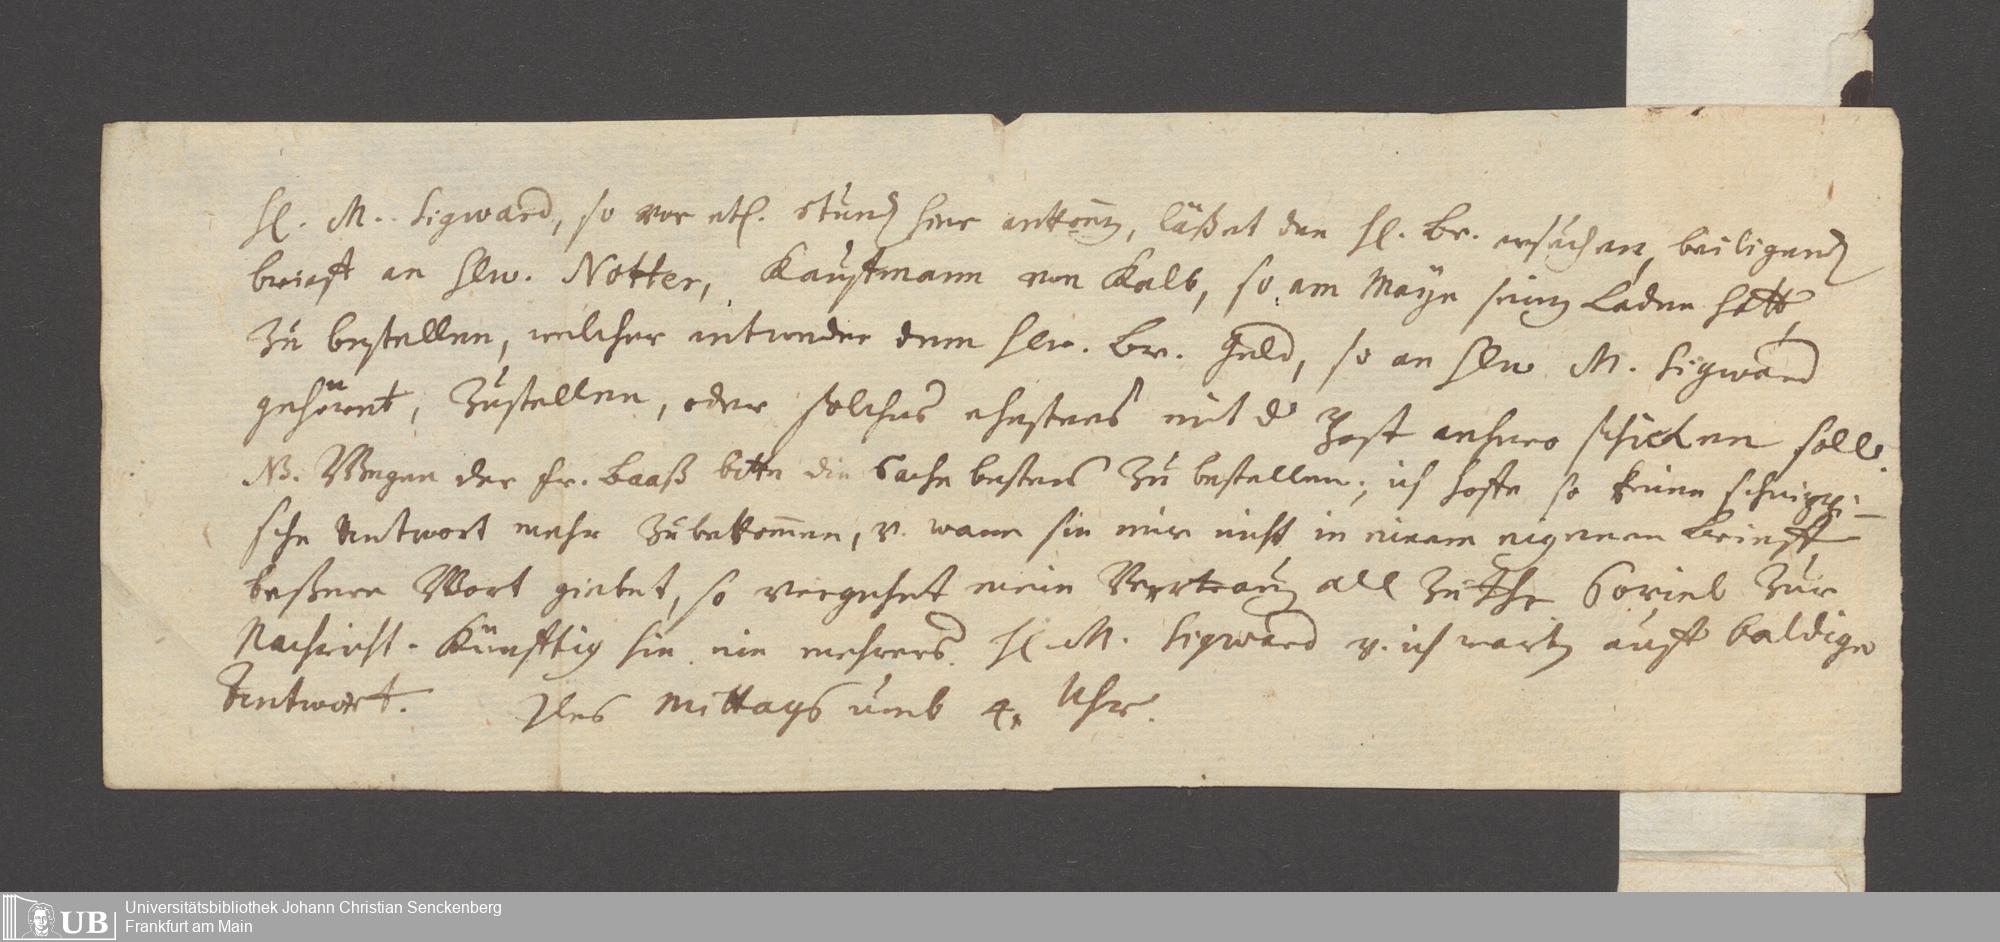 H. M. Sigward, so vor etl. stund hier ankom̄en, läßet den H. Br. ersuchen, beiligend
brieff an Hen. Notter, Kauffmann von Kalb, so am Mayn seinen Laden hatt,
zu bestellen, welcher entweder dem Hen. Br. Geld, so an Hen M. Sigward
gehöret, zustellen, oder solches ehestens mit d Post anhero schicken soll.
NB. Wegen der Fr. Baaß bitte die Sache bestens zu bestellen, ich hoffe so keine schnippi-
sche Antwort mehr zubekom̄en, v. wann sie mir nicht in einem eigenen Brieff
beßere Wort giebet, so vergehet mein Vertrauen all Soviel zur
Nachricht. Künfftig hin ein mehrers. H. M. Sigward v. ich warten auff baldige
Antwort. Des Mittags umb 4. Uhr.
UB
Universitätsbibliothek Johann Christian Senckenberg
Frankfurt am Main